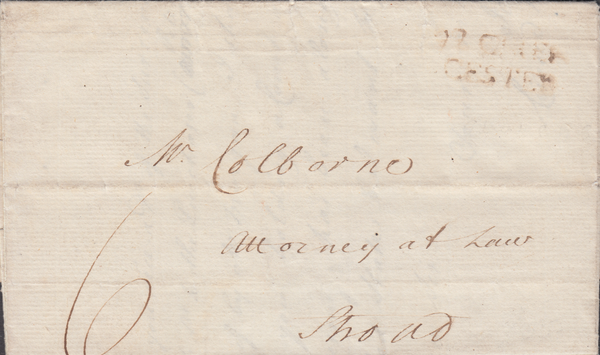 CIREN
CESTER
Mr. Colborne
Attorney at Law
6
Stroud